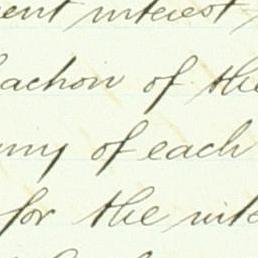 ent interest
achon of the
any of each
for the inte